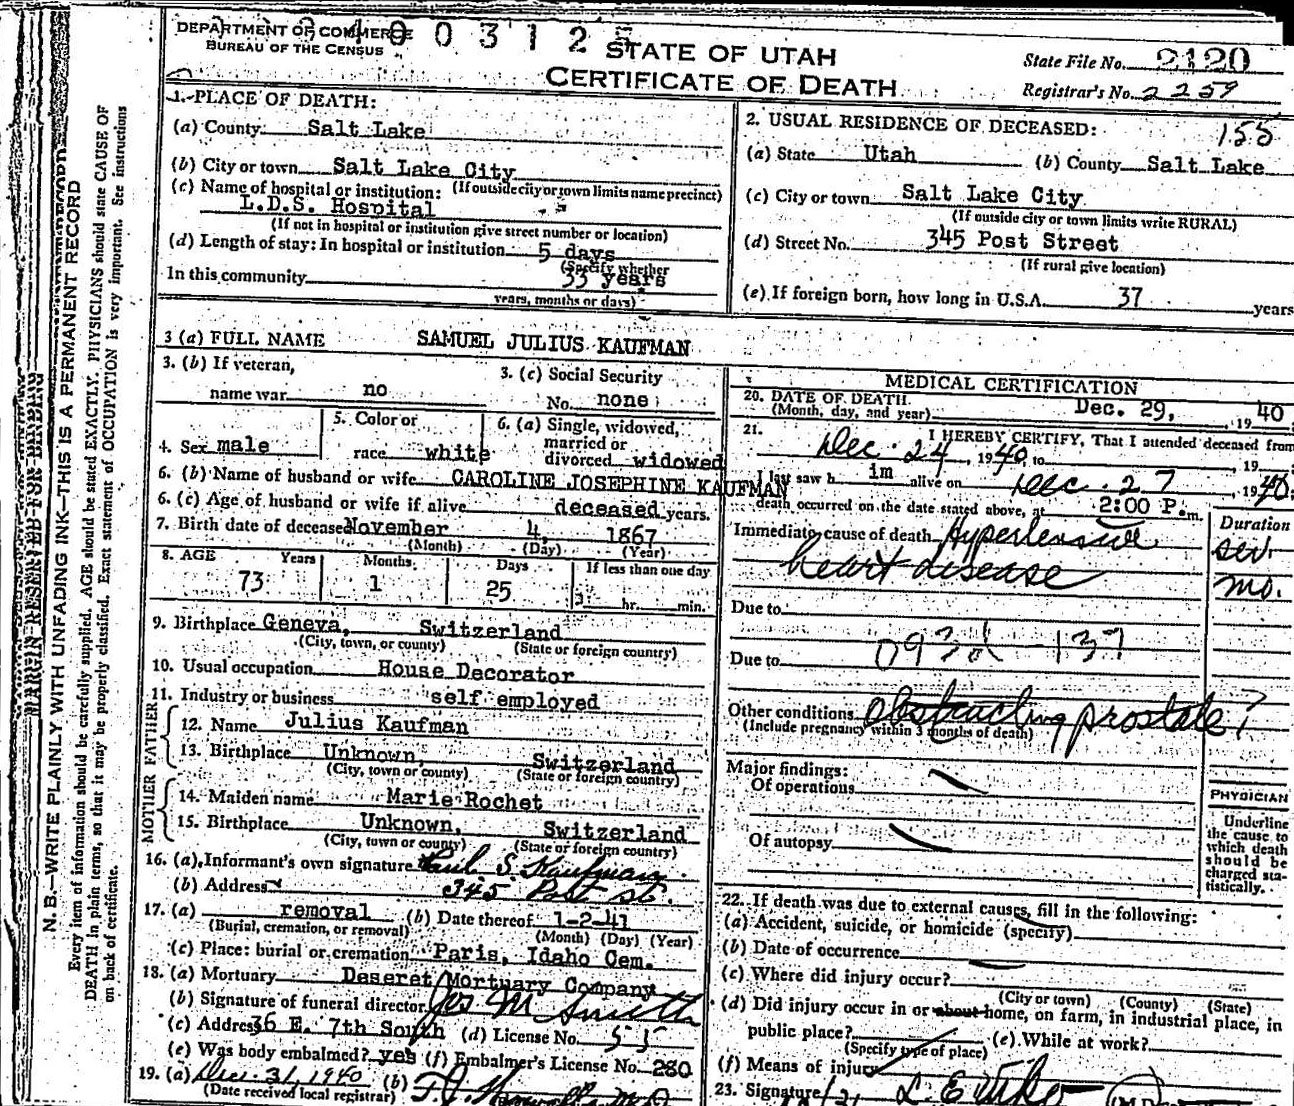 DEPARTMENT OF COMMERCE
BUREAU OF THE CENSUS
STATE OF UTAH
CERTIFICATE OF DEATH
State File No. 2120
Registrar's No. 2259
1. PLACE OF DEATH:
(a) County Salt Lake
(b) City or town Salt Lake City
(If outside city or town limits name precinct)
(c) Name of hospital or institution:
L.D.S. Hospital
(If not in hospital or institution give street number or location)
(d) Length of stay: In hospital or institution 5 days
(Specify whether
In this community 33 years
years, months or days)
2. USUAL RESIDENCE OF DECEASED: 155
(a) State Utah (b) County Salt Lake
(c) City or town Salt Lake City
(If outside city or town limits write RURAL)
(d) Street No. 345 Post Street
(If rural give location)
(e) If foreign born, how long in U.S.A. 37 years
3 (a) FULL NAME SAMUEL JULIUS KAUFMAN
3. (b) If veteran,
name war no
3. (c) Social Security
No. none
4. Sex male
5. Color or
race white
6. (a) Single, widowed,
married or
divorced widowed
6. (b) Name of husband or wife CAROLINE JOSEPHINE KAUFMAN
6. (c) Age of husband or wife if alive deceased years.
7. Birth date of deceased November 4, 1867
(Month) (Day) (Year)
8. AGE Years Months Days If less than one day
73 1 25 hr. min.
9. Birthplace Geneva, Switzerland
(City, town, or county) (State or foreign country)
10. Usual occupation House Decorator
11. Industry or business self employed
FATHER
12. Name Julius Kaufman
13. Birthplace Unknown, Switzerland
(City, town or county) (State or foreign country)
MOTHER
14. Maiden name Marie Rochet
15. Birthplace Unknown, Switzerland
(City, town or county) (State or foreign country)
16. (a) Informant's own signature S. Kaufman
(b) Address 345 Post St.
17. (a) removal (b) Date thereof 1-2-41
(Burial, cremation, or removal) (Month) (Day) (Year)
(c) Place: burial or cremation Paris, Idaho Cem.
18. (a) Mortuary Deseret Mortuary Company
(b) Signature of funeral director Jos M Smith
(c) Address 36 E. 7th South (d) License No. 55
(e) Was body embalmed? yes (f) Embalmer's License No. 280
19. (a) Dec. 31, 1940 (b)
(Date received local registrar)
MEDICAL CERTIFICATION
20. DATE OF DEATH
(Month, day, and year) Dec. 29, 1940
21. I HEREBY CERTIFY, That I attended deceased from
Dec. 24, 1940, to , 19
I last saw him alive on Dec. 27, 1940,
death occurred on the date stated above, at 2:00 P. m.
Immediate cause of death Hypertensive
heart disease
Duration
sev.
mo.
Due to
093d 137
Due to
Other conditions obstructing prostate?
(Include pregnancy within 3 months of death)
Major findings:
Of operations
Of autopsy
PHYSICIAN
Underline
the cause to
which death
should be
charged sta-
tistically.
22. If death was due to external causes, fill in the following:
(a) Accident, suicide, or homicide (specify)
(b) Date of occurrence
(c) Where did injury occur?
(City or town) (County) (State)
(d) Did injury occur in or about home, on farm, in industrial place, in
public place? (e) While at work?
(Specify type of place)
(f) Means of injury
23. Signature
MARGIN RESERVED FOR BINDING
N. B.—WRITE PLAINLY WITH UNFADING INK—THIS IS A PERMANENT RECORD
Every item of information should be carefully supplied. AGE should be stated EXACTLY. PHYSICIANS should state CAUSE OF
DEATH in plain terms, so that it may be properly classified. Exact statement of OCCUPATION is very important. See instructions
on back of certificate.